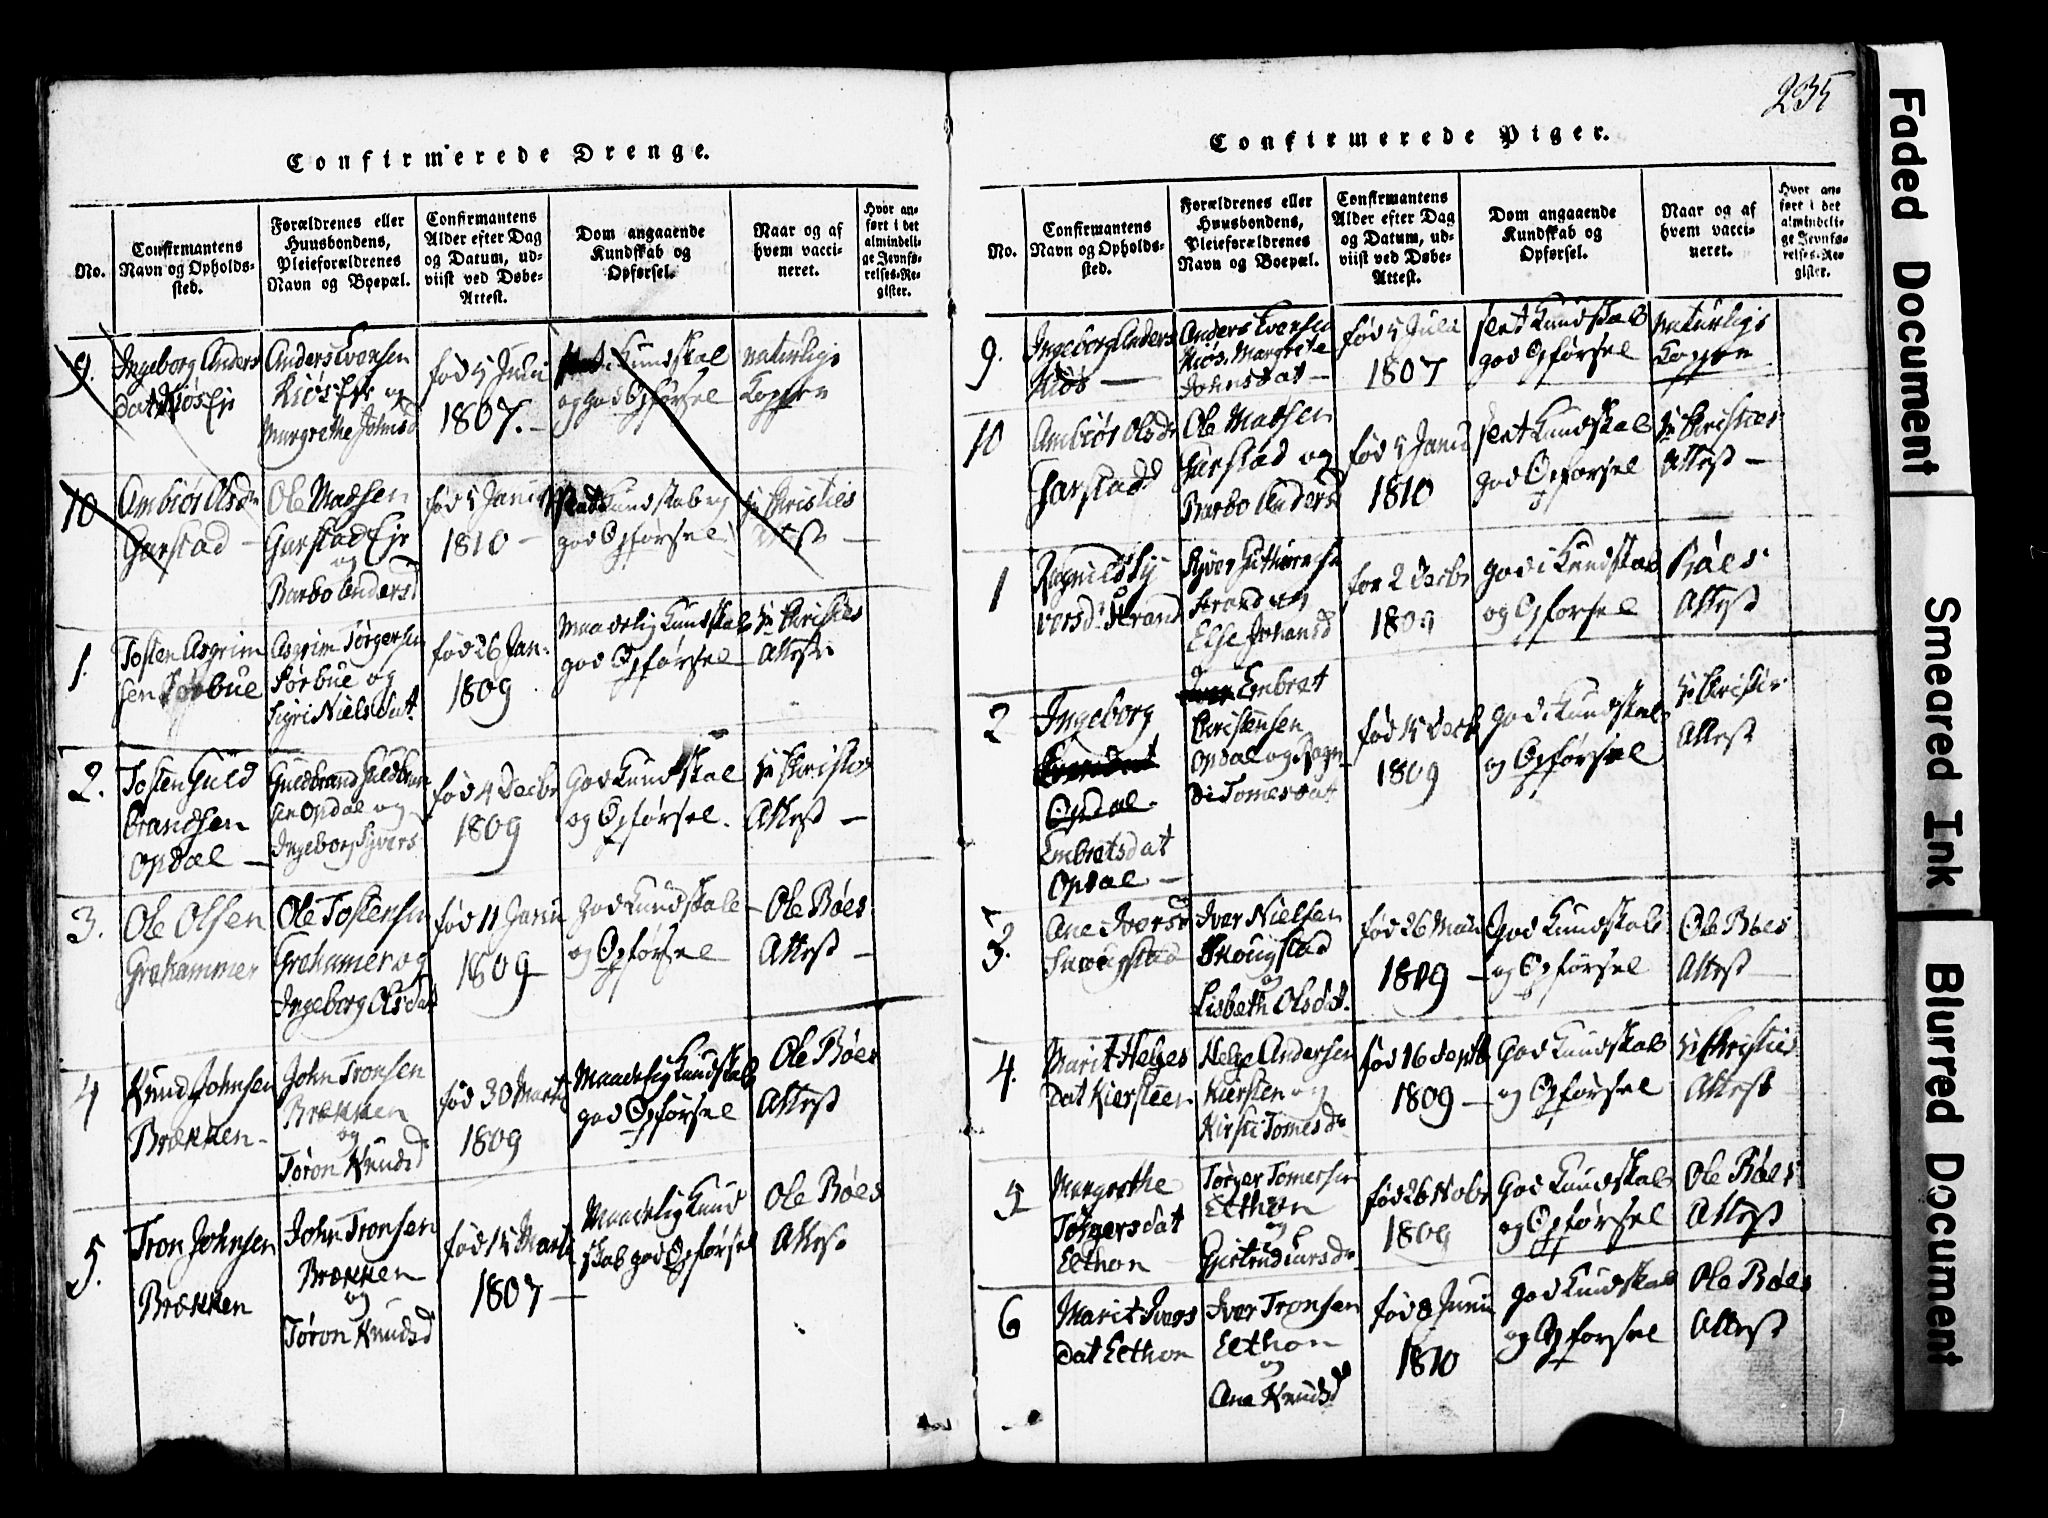 235
Confirmerede Drenge.
No.
Confirmantens
Navn og Opholds-
sted.
Forældrenes eller
Huusbondens,
Pleieforældrenes
Navn og Boepæl.
Confirmantens
Alder efter Dag
og Datum, ud-
viist ved Døbe-
Attest.
Dom angaaende
Kundskab og
Opførsel.
Naar og af
hvem vacci-
neret.
Hvor an-
ført i det
almindeli-
ge Jevnfø-
relses-Re-
gister.
9.
Ingeborg Anders
dat Kiøs Eje
Anders Evensen
Kiøs Eje og
Margrethe Johnsd
fød 5 Juni
1807.-
Kundskab
og god Opførsel
naturlige
Kopper
10
Ambiør Olsdr
Garstad -
Ole Madsen
Garstad Eje
og
Barbo Andersd
fød 5 Janu
1810 -
Kundskab og
god Opførsel
Hr Christies
Attest -
1.
Tosten Asgrim
sen Sørbue
Asgrim Tørgersen
Sørbue og
Sigri Nielsdat.
fød 26 Jan.
1809
Maadelig Kundskab
god Opførsel
Hr Christies
Attest
2.
Tosten Guld
brandsen
Opdal -
Guldbrand Guldbran
sen Opdal og
Ingeborg Syvers
fød 4 Decbr
1809
God Kundskab
og Opførsel.
Hr Christies
Attest -
3.
Ole Olsen
Grøhammer
Ole Tostensen
Grøhamer og
Ingeborg Olsdat
fød 11 Janu
1809
God Kundskab
og Opførsel
Ole Bøes
Attest -
4
Knud Johnsen
Brækken -
John Tronsen
Brækken
og
Tøron Knudsd
fød 30 Marti
1809
Maadelig Kundskab
god Opførsel
Ole Bøes
Attest
5.
Tron Johnsen
Brækken
John Tronsen
Brækken
og
Tøron Knudsd
fød 15 Marti
1807 -
Maadelig Kund
skab god Opførsel
Ole Bøes
Attest
Confirmerede Piger.
No.
Confirmantens
Navn og Opholds-
sted.
Forældrenes eller
Huusbondens,
Pleieforældrenes
Navn og Boepæl.
Confirmantens
Alder efter Dag
og Datum, ud-
viist ved Døbe-
Attest.
Dom angaaende
Kundskab og
Opførsel.
Naar og af
hvem vacci-
neret.
Hvor an-
ført i det
almindeli-
ge Jevnfø-
relses-Re-
gister.
9.
Ingeborg Anders
Kiøs -
Anders Evensen
Kiøs, Margrete
Johnsdat -
fød 5 Juli
1807
slet Kundskab
god Opførsel
naturlige
Kopper
10
Ambiør Olsdr
Garstad
Ole Madsen
Garstad og
Barbo Andersd
fød 5 Janu
1810
slet Kundskab
god Opførsel
Hr Christies
Attest -
1
Ragnild Sy
versd. Strand
Syver Guttormsen
Strand og
Else Johansd
fød 2 Decbr
1809
god Kundskab
og Opførsel
Bøes
Attest
2
Ingeborg
Opdal
Embretsdat
Opdal -
Embret
Christensen
Opdal og Ragn
di Tomesdat
fød 15 Decb
1809
god Kundskab
og Opførsel
Hr Christies
Attest
3.
Ane Iversd
Skougstad
Iver Nielsen
Skougstad
og
Lisbeth Olsdat.
fød 26 Mai
1809 -
God Kundskab
og Opførsel
Ole Bøes
Attest -
4.
Marit Helges
dat Kiersteen
Helge Andersen
Kiersten og
Kirsti Tomesdr
fød 16 Septb
1809 -
God Kundskab
og Opførsel
Hr Christies
Attest
5
Margrethe
Tørgersdat
Eethon
Tørger Tomessen
Eethon
og
Giertrud Larsdr
fød 26 Nobr
1809
God Kundskab
og Opførsel
Ole Bøes
Attest
6
Marit Ivers
dat Eethon
Iver Tronsen
Eethon
og
Ane Knudsd
fød 8 Juni
1810
god Kundskab
og Opførsel
Ole Bøes
Attest
Faded Document
Smeared Ink
Blurred Document